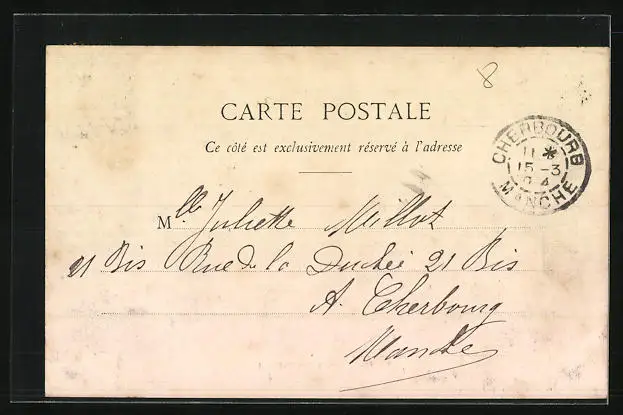 8
CARTE POSTALE
Ce côté est exclusivement réservé à l'adresse
CHERBOURG
11 *
15 -3
04
MANCHE
Mlle Juliette Millot
21 Bis Rue de la Duché 21 Bis
A. Cherbourg
Manche